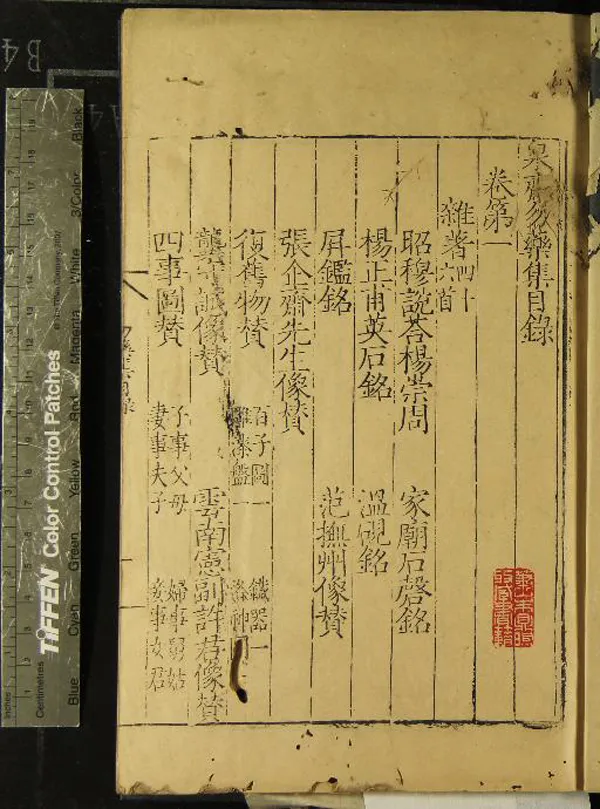 泉齋勿藥集目錄
卷第一
雜著四十六首
昭穆說荅楊崇周 家廟石磬銘
楊正甫英石銘 溫硯銘
屏鑑銘 范撫州像赞
張企齋先生像赞
復舊物赞 百子圖一 鐵器一
像赞 雲南憲副許君像赞
四事圖赞 子事父母 妻事夫子 婦事舅姑 妾事女君
TIFFEN Color Control Patches
Blue Cyan Green Yellow Red Magenta White 3/Color Black
Inches
Centimetres
B4